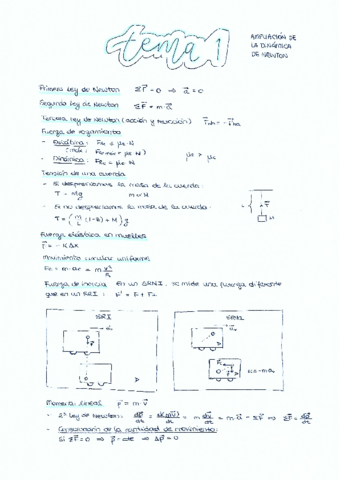 tema 1
AMPLIACIÓN DE
LA DINÁMICA
DE NEWTON
Primera Ley de Newton Σ F⃗ = 0 ⇒ a⃗ = 0
Segunda Ley de Newton Σ F⃗ = m·a⃗
Tercera Ley de Newton (acción y reacción)
Fuerza de rozamiento
- Estática:
- Dinámica:
μs > μc
Tensión de una cuerda
- Si despreciamos la masa de la cuerda:
T = Mg
- Si no despreciamos la masa de la cuerda:
T = (m/L (L-z) + M) g
Fuerza elástica en muelles
F⃗ = -KΔx
Movimiento circular uniforme
Fc = m·ac = m v²/R
Fuerza de inercia En un SRNI, se mide una fuerza diferente
que en un SRI:
SRI
SRNI
Momento lineal p⃗ = m·v⃗
- 2ª Ley de Newton: dp⃗/dt = d(mv⃗)/dt = m dv⃗/dt = m·a⃗ = ΣF⃗ ⇒ ΣF⃗ = dp⃗/dt
- Conservación de la cantidad de movimiento:
Si ΣF⃗ = 0 ⇒ p⃗ = cte ⇒ Δp⃗ = 0